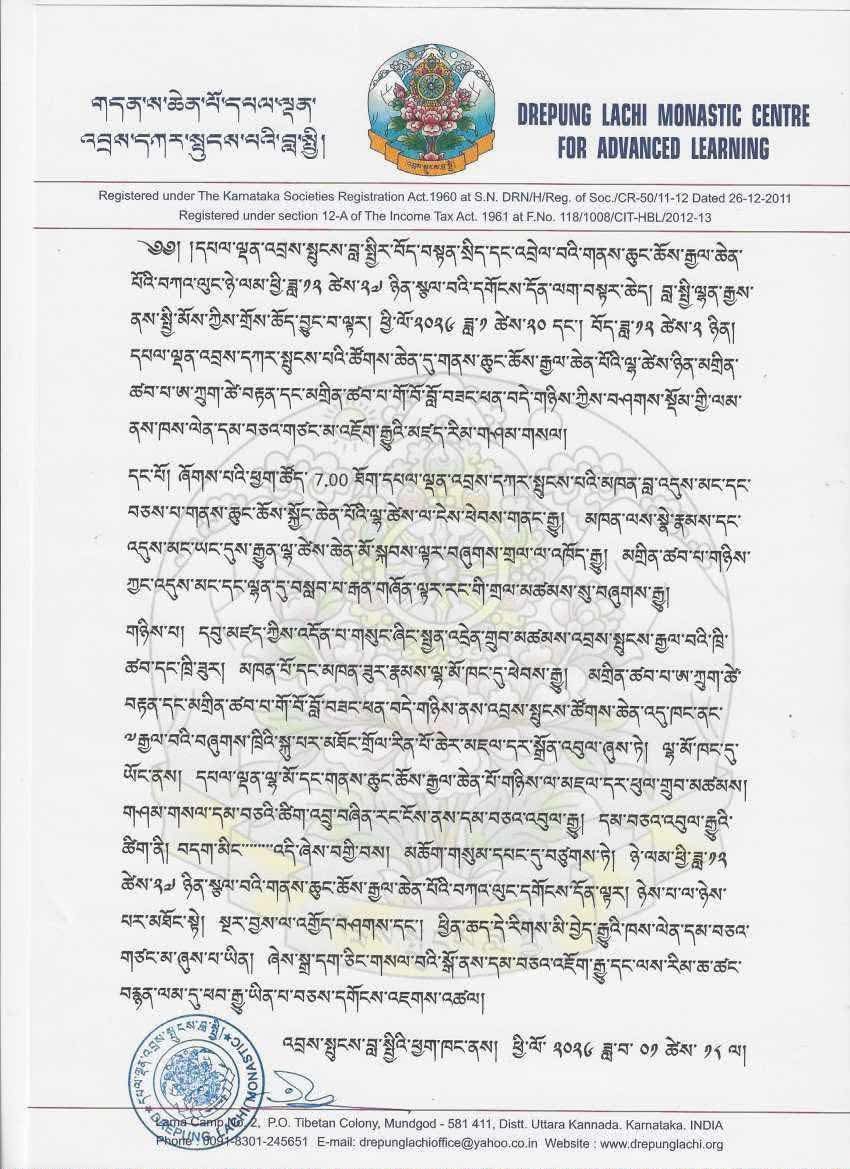 གདན་ས་ཆེན་པོ་དཔལ་ལྡན་
འབྲས་དཀར་སྤུངས་པའི་བླ་སྤྱི།
DREPUNG LACHI MONASTIC CENTRE
FOR ADVANCED LEARNING
Registered under The Karnataka Societies Registration Act.1960 at S.N. DRN/H/Reg. of Soc./CR-50/11-12 Dated 26-12-2011
Registered under section 12-A of The Income Tax Act. 1961 at F.No. 118/1008/CIT-HBL/2012-13
༄༅། །དཔལ་ལྡན་འབྲས་སྤུངས་བླ་སྤྱིར་བོད་བསྟན་སྲིད་དང་འབྲེལ་བའི་གནས་ཆུང་ཆོས་རྒྱལ་ཆེན་
པོའི་བཀའ་ལུང་ཉེ་ལམ་ཕྱི་ཟླ་༡༢ ཚེས་༢༧ ཉིན་སྩལ་བའི་དགོངས་དོན་ལག་བསྟར་ཆེད། བླ་སྤྱི་ལྷན་རྒྱས་
ནས་སྤྱི་མོས་ཀྱིས་གྲོས་ཆོད་བྱུང་བ་ལྟར། ཕྱི་ལོ་༢༠༢༦ ཟླ་༡ ཚེས་༢༠ དང་། བོད་ཟླ་༡༢ ཚེས་༢ ཉིན།
དཔལ་ལྡན་འབྲས་དཀར་སྤུངས་པའི་ཚོགས་ཆེན་དུ་གནས་ཆུང་ཆོས་རྒྱལ་ཆེན་པོའི་ལྷ་ཚེས་ཉིན་མགྲིན་
ཚབ་པ་ཨ་ཀྲུག་ཚེ་བརྟན་དང་མགྲིན་ཚབ་པ་གོ་བོ་བློ་བཟང་ཕན་བདེ་གཉིས་ཀྱིས་བཤགས་སྡོམ་གྱི་ལམ་
ནས་ཁས་ལེན་དམ་བཅའ་གཙང་མ་འཇོག་རྒྱུའི་མཛད་རིམ་གཤམ་གསལ།
དང་པོ། ཞོགས་པའི་ཕྱག་ཚོད་ 7.00 ཐོག་དཔལ་ལྡན་འབྲས་དཀར་སྤུངས་པའི་མཁན་བླ་འདུས་མང་དང་
བཅས་པ་གནས་ཆུང་ཆོས་སྐྱོང་ཆེན་པོའི་ལྷ་ཚེས་ལ་ངེས་ཕེབས་གནང་རྒྱུ། མཁན་ལས་སྣེ་རྣམས་དང་
འདུས་མང་ཡང་དུས་རྒྱུན་ལྷ་ཚེས་ཆེན་མོ་སྐབས་ལྟར་བཞུགས་གྲལ་ལ་འཁོད་རྒྱུ། མགྲིན་ཚབ་པ་གཉིས་
ཀྱང་འདུས་མང་དང་ལྷན་དུ་བསླབ་པ་རྒན་གཞོན་ལྟར་རང་གི་གྲལ་མཚམས་སུ་བཞུགས་རྒྱུ།
གཉིས་པ། དབུ་མཛད་ཀྱིས་འདོན་པ་གསུང་ཞིང་སྤྱན་འདྲེན་གྲུབ་མཚམས་འབྲས་སྤུངས་རྒྱལ་བའི་ཁྲི་
ཚབ་དང་ཁྲི་ཟུར། མཁན་པོ་དང་མཁན་ཟུར་རྣམས་ལྷ་མོ་ཁང་དུ་ཕེབས་རྒྱུ། མགྲིན་ཚབ་པ་ཨ་ཀྲུག་ཚེ་
བརྟན་དང་མགྲིན་ཚབ་པ་གོ་བོ་བློ་བཟང་ཕན་བདེ་གཉིས་ནས་འབྲས་སྤུངས་ཚོགས་ཆེན་འདུ་ཁང་ནང་
༧རྒྱལ་བའི་བཞུགས་ཁྲིའི་སྐུ་པར་མཐོང་གྲོལ་རིན་པོ་ཆེར་མཇལ་དར་སྒྲོན་འབུལ་ཞུས་ཏེ། ལྷ་མོ་ཁང་དུ་
ཡོང་ནས། དཔལ་ལྡན་ལྷ་མོ་དང་གནས་ཆུང་ཆོས་རྒྱལ་ཆེན་པོ་གཉིས་ལ་མཇལ་དར་ཕུལ་གྲུབ་མཚམས།
གཤམ་གསལ་དམ་བཅའི་ཚིག་འབྲུ་བཞིན་རང་ངོས་ནས་དམ་བཅའ་འབུལ་རྒྱུ། དམ་བཅའ་འབུལ་རྒྱུའི་
ཚིག་ནི། བདག་མིང་་་་་་་་་འདི་ཞེས་བགྱི་བས། མཆོག་གསུམ་དཔང་དུ་བཙུགས་ཏེ། ཉེ་ལམ་ཕྱི་ཟླ་༡༢
ཚེས་༢༧ ཉིན་སྩལ་བའི་གནས་ཆུང་ཆོས་རྒྱལ་ཆེན་པོའི་བཀའ་ལུང་དགོངས་དོན་ལྟར། ཉེས་པ་ལ་ཉེས་
པར་མཐོང་སྟེ། སྔར་བྱས་ལ་འགྱོད་བཤགས་དང་། ཕྱིན་ཆད་དེ་རིགས་མི་བྱེད་རྒྱུའི་ཁས་ལེན་དམ་བཅའ་
གཙང་མ་ཞུས་པ་ཡིན། ཞེས་སྒྲ་དག་ཅིང་གསལ་བའི་སྒོ་ནས་དམ་བཅའ་འཇོག་རྒྱུ་དང་ལས་རིམ་ཆ་ཚང་
བརྟན་ལམ་དུ་ཕབ་རྒྱུ་ཡིན་པ་བཅས་དགོངས་འཇགས་འཚལ།
འབྲས་སྤུངས་བླ་སྤྱིའི་ཕྱག་ཁང་ནས། ཕྱི་ལོ་ ༢༠༢༦ ཟླ་བ་ ༠༡ ཚེས་ ༡༨ ལ།
དཔལ་ལྡན་འབྲས་སྤུངས་བླ་སྤྱི།
DREPUNG LACHI MONASTIC
Lama Camp No. 2, P.O. Tibetan Colony, Mundgod - 581 411, Distt. Uttara Kannada. Karnataka. INDIA
Phone : 0091-8301-245651 E-mail: drepunglachioffice@yahoo.co.in Website : www.drepunglachi.org